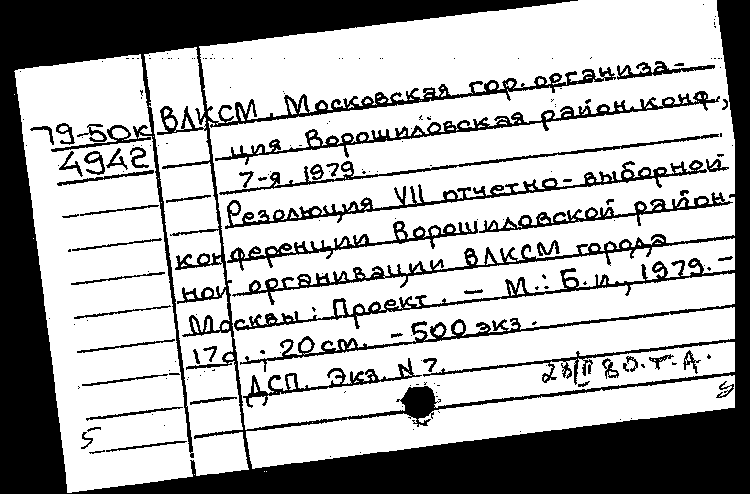 79-50к
4942
ВЛКСМ. Московская гор. организа-
ция. Ворошиловская район. конф.,
7-я. 1979.
Резолюция VII отчетно-выборной
конференции Ворошиловской район-
ной организации ВЛКСМ города
Москвы: Проект. — М.: Б.и., 1979. —
17с.; 20см. - 500 экз.
ДСП. Экз. N 7.
28/II 80. Т.А.
5